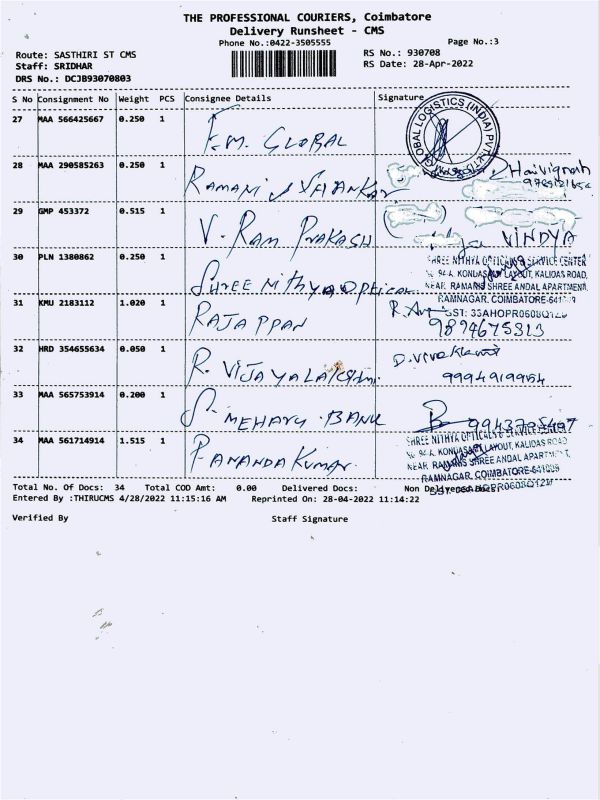 THE PROFESSIONAL COURIERS, Coimbatore
Delivery Runsheet - CMS
Phone No.:0422-3505555
Page No.:3
Route: SASTHIRI ST CMS
Staff: SRIDHAR
DRS No.: DCJB93070803
RS No.: 930708
RS Date: 28-Apr-2022
S No Consignment No Weight PCS Consignee Details Signature
27 MAA 566425667 0.250 1 F.M. GLOBAL
GLOBAL LOGISTICS (INDIA) PVT. LTD.
28 MAA 290585263 0.250 1 RAMANI
29 GMP 453372 0.515 1 V. RAM PRAKASH VINDYA
30 PLN 1380862 0.250 1 SHREE NITHYA OPTICAL
SHREE NITHYA OPTICALS & SERVICE CENTER
94 A, KONDASAMY LAYOUT, KALIDAS ROAD,
NEAR RAMANIS SHREE ANDAL APARTMENT,
RAMNAGAR, COIMBATORE-641009
GST: 33AHOPR0608Q1
31 KMU 2183112 1.020 1 RAJAPPAN 9894675313
32 HRD 354655634 0.050 1 R. VIJAYALAKSHMI
9994919954
33 MAA 565753914 0.200 1 BANK
34 MAA 561714914 1.515 1 P. ANANDA KUMAR
SHREE NITHYA OPTICALS & SERVICE CENTER
94 A, KONDASAMY LAYOUT, KALIDAS ROAD
NEAR RAMANIS SHREE ANDAL APARTMENT,
RAMNAGAR, COIMBATORE-641009
Total No. Of Docs: 34 Total COD Amt: 0.00 Delivered Docs: Non Delivered Docs:
Entered By :THIRUCMS 4/28/2022 11:15:16 AM Reprinted On: 28-04-2022 11:14:22
Verified By Staff Signature